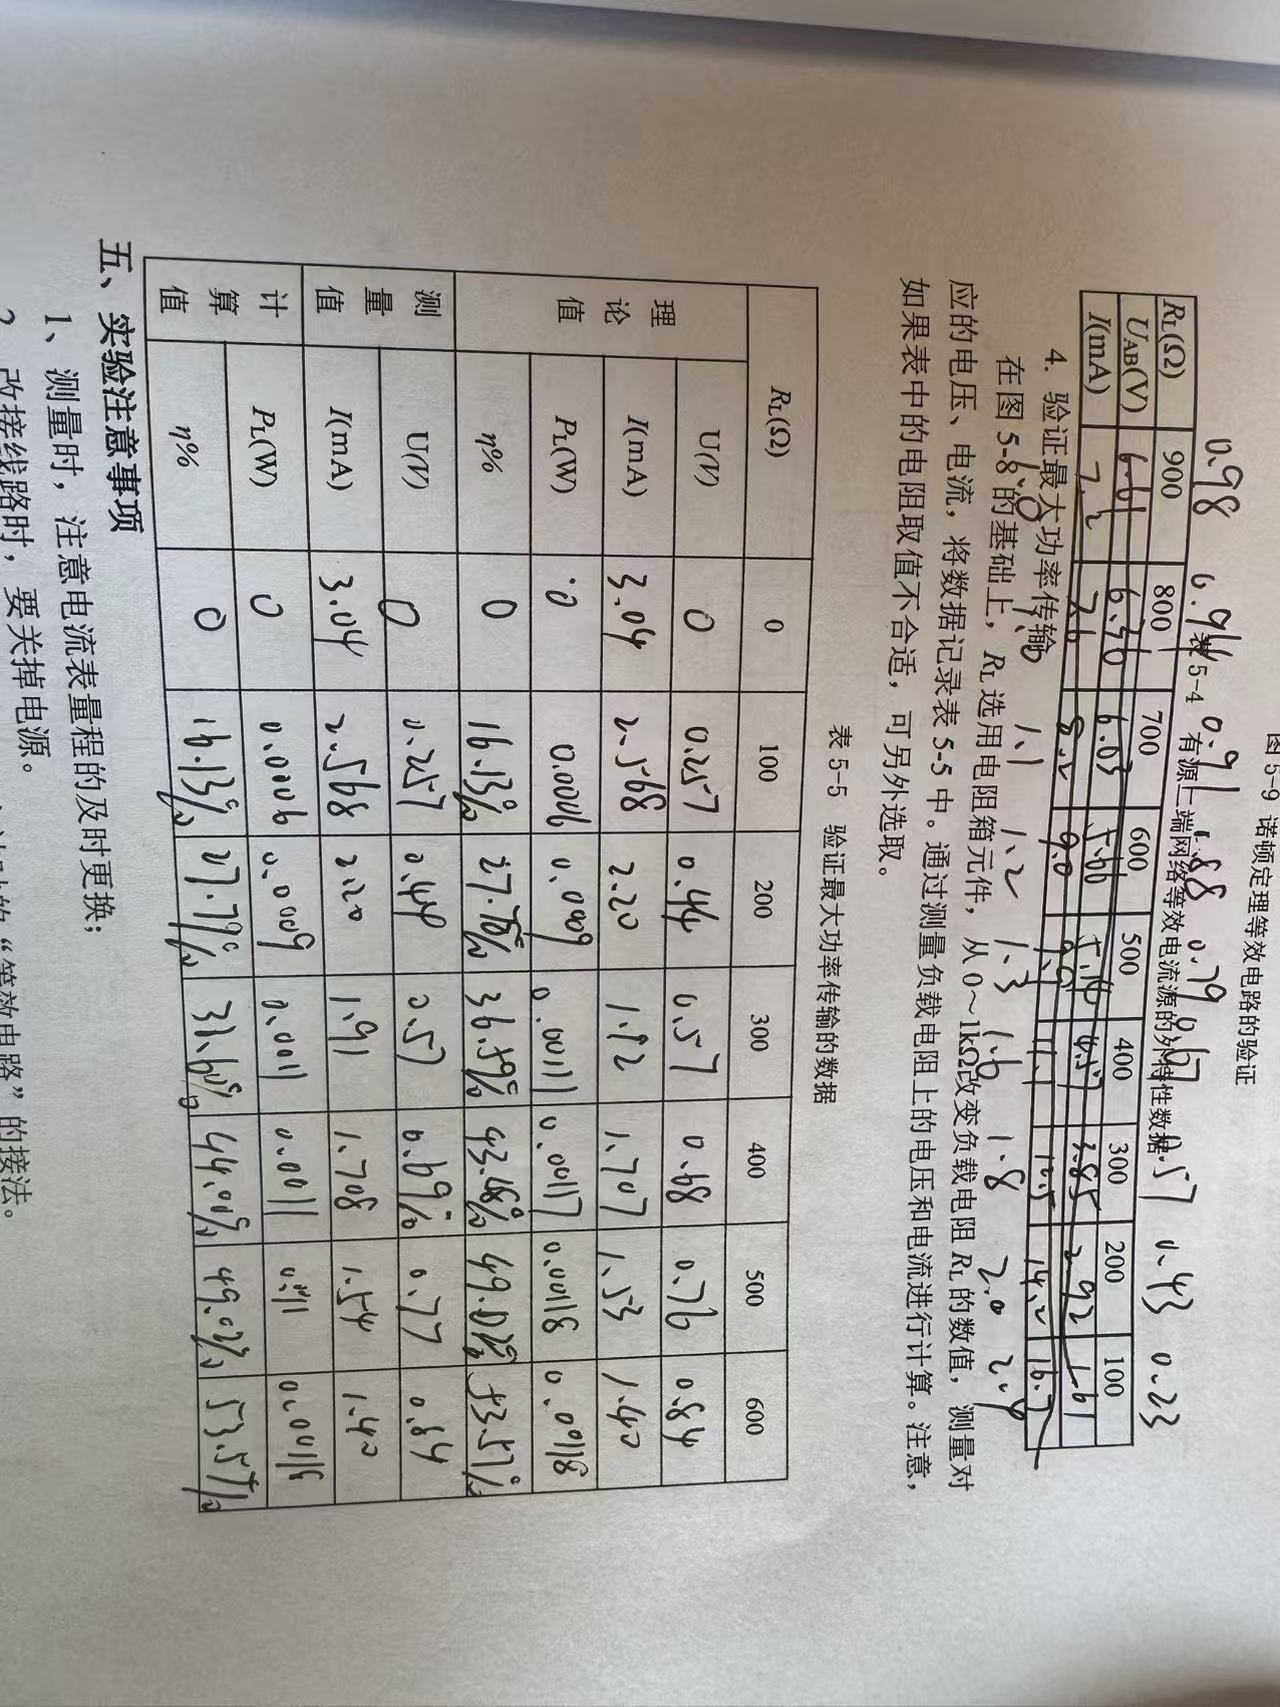 图 5-9 诺顿定理等效电路的验证
表 5-4 有源二端网络等效电流源的外特性数据
0.98 0.91 0.88 0.79 0.67 0.57 0.43 0.23
RL(Ω) 900 800 700 600 500 400 300 200 100
UAB(V) 6.61 6.36 6.03 3.85 2.92 1.61
I(mA) 7.2 7.6 8.2 9.0 11.1 14.2 16.7
1.0 1.0 1.1 1.2 1.3 1.6 1.8 2.0
4. 验证最大功率传输
在图 5-8 的基础上，RL 选用电阻箱元件，从 0～1kΩ改变负载电阻 RL 的数值，测量对
应的电压、电流，将数据记录表 5-5 中。通过测量负载电阻上的电压和电流进行计算。注意，
如果表中的电阻取值不合适，可另外选取。
表 5-5 验证最大功率传输的数据
RL(Ω) 0 100 200 300 400 500 600
理论值 U(V) 0 0.257 0.44 0.57 0.68 0.76 0.84
I(mA) 3.04 2.568 2.20 1.92 1.707 1.53 1.40
PL(W) 0 0.0006 0.0009 0.00111 0.00117 0.00118 0.00118
η% 0 16.13% 27.78% 36.59% 43.48% 49.02% 53.57%
测量值 U(V) 0 0.257 0.44 0.57 0.69 0.77 0.84
I(mA) 3.04 2.568 2.20 1.91 1.708 1.54 1.40
计算值 PL(W) 0 0.0006 0.0009 0.0011 0.0011 0.00118
η% 0 16.13% 27.79% 44.0% 49.02% 53.57%
五、实验注意事项
1、测量时，注意电流表量程的及时更换；
2、改接线路时，要关掉电源。
“等效电路”的接法。